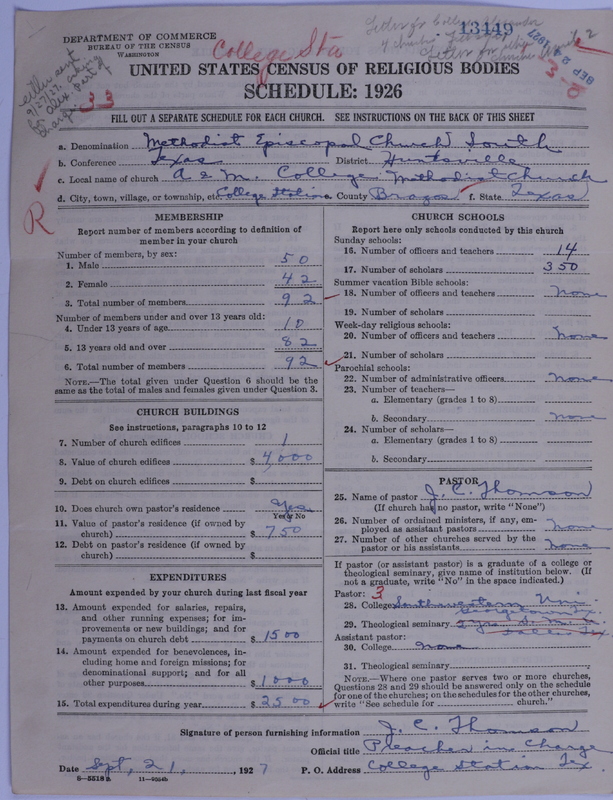 13149
SEP 2 1927
3-0
College Sta
33
R
DEPARTMENT OF COMMERCE
BUREAU OF THE CENSUS
WASHINGTON
UNITED STATES CENSUS OF RELIGIOUS BODIES
SCHEDULE: 1926
FILL OUT A SEPARATE SCHEDULE FOR EACH CHURCH. SEE INSTRUCTIONS ON THE BACK OF THIS SHEET
a. Denomination Methodist Episcopal Church South
b. Conference Texas District Huntsville
c. Local name of church A & M. College Methodist Church
d. City, town, village, or township, etc. College Station e. County Brazos f. State Texas
MEMBERSHIP
Report number of members according to definition of
member in your church
Number of members, by sex:
1. Male 50
2. Female 42
3. Total number of members 92
Number of members under and over 13 years old:
4. Under 13 years of age 10
5. 13 years old and over 82
6. Total number of members 92
NOTE.—The total given under Question 6 should be
same as the total of males and females given under Question 3.
CHURCH BUILDINGS
See instructions, paragraphs 10 to 12
7. Number of church edifices 1
8. Value of church edifices $ 4000
9. Debt on church edifices $
10. Does church own pastor's residence Yes
Yes or No
11. Value of pastor's residence (if owned by
church) $ 750
12. Debt on pastor's residence (if owned by
church) $
EXPENDITURES
Amount expended by your church during last fiscal year
13. Amount expended for salaries, repairs,
and other running expenses; for im-
provements or new buildings; and for
payments on church debt $ 1500
14. Amount expended for benevolences, in-
cluding home and foreign missions; for
denominational support; and for all
other purposes $ 1000
15. Total expenditures during year $ 2500
CHURCH SCHOOLS
Report here only schools conducted by this church
Sunday schools:
16. Number of officers and teachers 14
17. Number of scholars 350
Summer vacation Bible schools:
18. Number of officers and teachers None
19. Number of scholars
Week-day religious schools:
20. Number of officers and teachers None
21. Number of scholars
Parochial schools:
22. Number of administrative officers None
23. Number of teachers—
a. Elementary (grades 1 to 8)
b. Secondary None
24. Number of scholars—
a. Elementary (grades 1 to 8)
b. Secondary
PASTOR
25. Name of pastor J. C. Thomson
(If church has no pastor, write "None")
26. Number of ordained ministers, if any, em-
ployed as assistant pastors None
27. Number of other churches served by the
pastor or his assistants None
If pastor (or assistant pastor) is a graduate of a college or
theological seminary, give name of institution below. (If
not a graduate, write "No" in the space indicated.)
Pastor: 3
28. College Southwestern Uni.
Georgetown Tex.
29. Theological seminary S. M. U.
Dallas Tex.
Assistant pastor:
30. College None
31. Theological seminary
NOTE.—Where one pastor serves two or more churches,
Questions 28 and 29 should be answered only on the schedule
for one of the churches; on the schedules for the other churches,
write "See schedule for church."
Signature of person furnishing information J. C. Thomson
Official title Preacher in Charge
Date Sept, 21, 1927 P. O. Address College Station Tex.
11—9554b